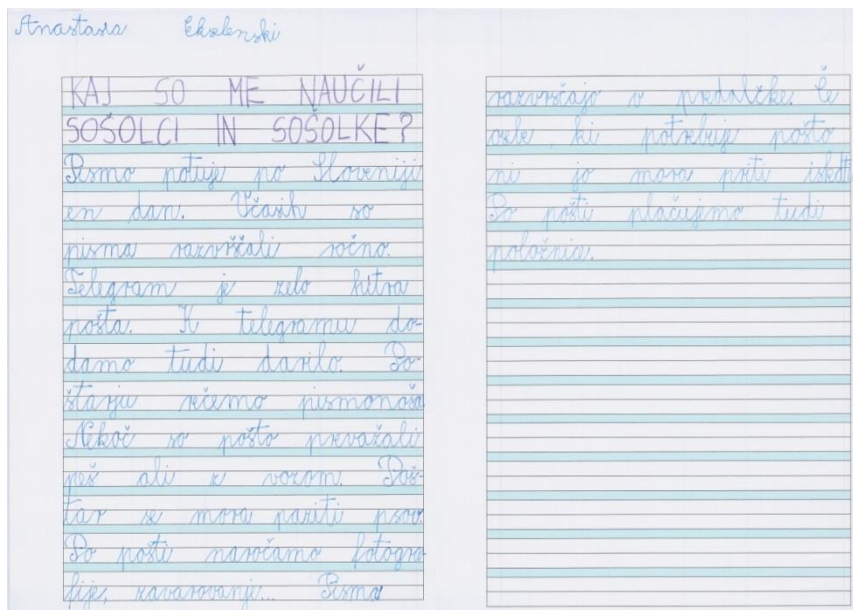 Anastasia Ekselenski
KAJ SO ME NAUČILI
SOŠOLCI IN SOŠOLKE?
Pismo potuje po Sloveniji
en dan. Včasih so
pisma razvrščali ročno.
Telegram je zelo hitra
pošta. K telegramu do-
damo tudi darilo. Po-
štarju rečemo pismonoša.
Nekoč so pošto prevažali
peš ali z vozom. Poš-
tar se mora paziti psov.
Po pošti naročamo fotogra-
fije, zavarovanje... Pisma
razvrščajo v predalčke. Če
osebe, ki potrebuje pošto
ni jo mora priti iskat.
Po pošti plačujemo tudi
položnice.